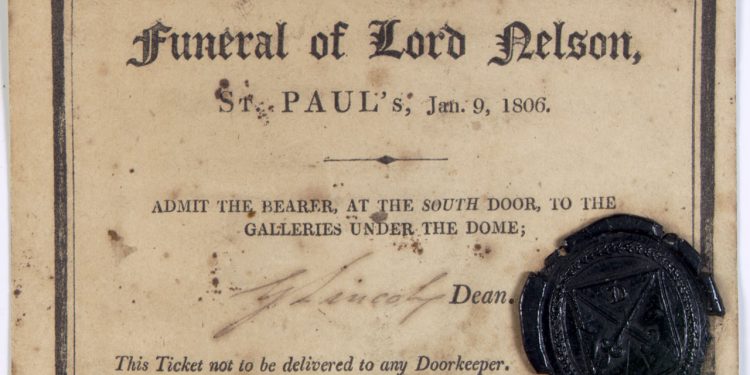 Funeral of Lord Nelson,
ST. PAUL's, Jan. 9, 1806.
ADMIT THE BEARER, AT THE SOUTH DOOR, TO THE
GALLERIES UNDER THE DOME;
G Lincoln Dean.
This Ticket not to be delivered to any Doorkeeper.